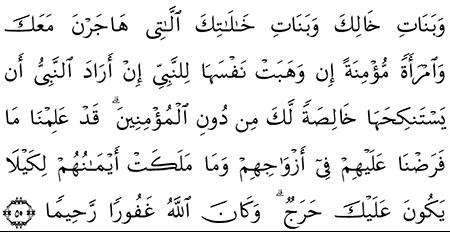 وَبَنَاتِ خَالِكَ وَبَنَاتِ خَٰلَٰتِكَ ٱلَّٰتِي هَاجَرْنَ مَعَكَ
وَٱمْرَأَةً مُّؤْمِنَةً إِن وَهَبَتْ نَفْسَهَا لِلنَّبِيِّ إِنْ أَرَادَ ٱلنَّبِيُّ أَن
يَسْتَنكِحَهَا خَالِصَةً لَّكَ مِن دُونِ ٱلْمُؤْمِنِينَ ۗ قَدْ عَلِمْنَا مَا
فَرَضْنَا عَلَيْهِمْ فِيٓ أَزْوَٰجِهِمْ وَمَا مَلَكَتْ أَيْمَٰنُهُمْ لِكَيْلَا
يَكُونَ عَلَيْكَ حَرَجٌ ۗ وَكَانَ ٱللَّهُ غَفُورًا رَّحِيمًا ٥٠